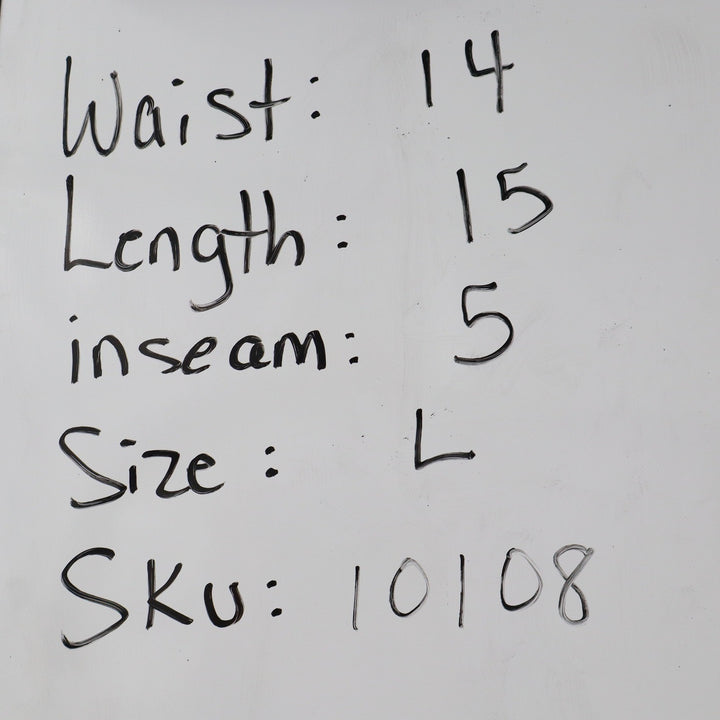 Waist: 14
Length: 15
inseam: 5
Size: L
SKU: 10108